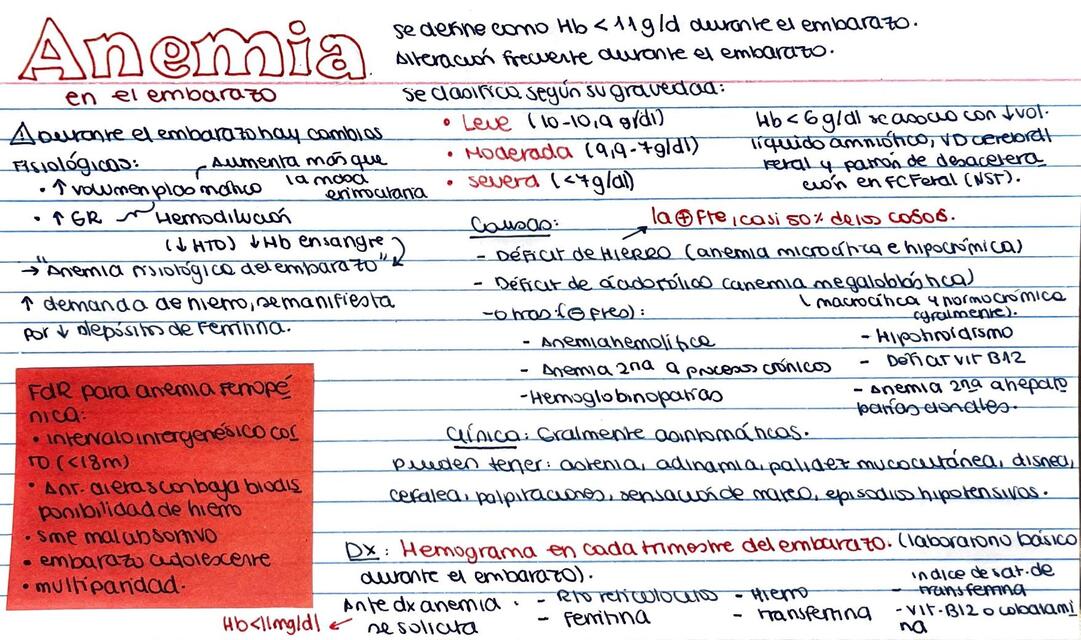 Anemia
en el embarazo
se define como Hb < 11 g/d durante el embarazo.
Alteración frecuente durante el embarazo.
se clasifica según su gravedad:
• Leve (10-10,9 g/dl)
• Moderada (9,9-7g/dl)
• severa (<7g/dl)
Hb < 6 g/dl se asocia con ↓ vol.
líquido amniótico, VD cerebral
fetal y patrón de desacelera
ción en FCFetal (NST).
⚠ Durante el embarazo hay cambios
Fisiológicos:
Aumenta más que
la masa
eritrocitaria
• ↑ volumen plasmático
• ↑ GR ~ Hemodilución
(↓ HTO) ↓ Hb en sangre
→ "Anemia fisiológica del embarazo"
↑ demanda de hierro, se manifiesta
por ↓ depósitos de Ferritina.
Causas:
la ⊕ fte, casi 50% de los casos.
- Déficit de HIERRO (anemia microcítica e hipocrómica)
- Déficit de ácido fólico (anemia megaloblástica)
macrocítica y normocrómica
(gralmente).
- otras (⊖ ftes):
- Anemia hemolítica
- Anemia 2ria a procesos crónicos
- Hemoglobinopatías
- Hipotiroidismo
- Déficit vit B12
- Anemia 2ria a hepato
patías clonales.
FdR para anemia ferropé
nica:
• intervalo intergenésico cor
to (<18m)
• Ant. dietas con baja biodis
ponibilidad de hierro
• sme malabsortivo
• embarazo adolescente
• multiparidad.
Clínica: Gralmente asintomáticos.
Pueden tener: astenia, adinamia, palidez mucocutánea, disnea,
cefalea, palpitaciones, sensación de mareo, episodios hipotensivos.
Dx: Hemograma en cada trimestre del embarazo. (laboratorio básico
durante el embarazo).
Ante dx anemia
se solicita
Hb<11mg/dl ←
- Rto reticulocitos
- Ferritina
- Hierro
- Transferrina
índice de sat. de
- transferrina
- Vit-B12 o cobalami
na